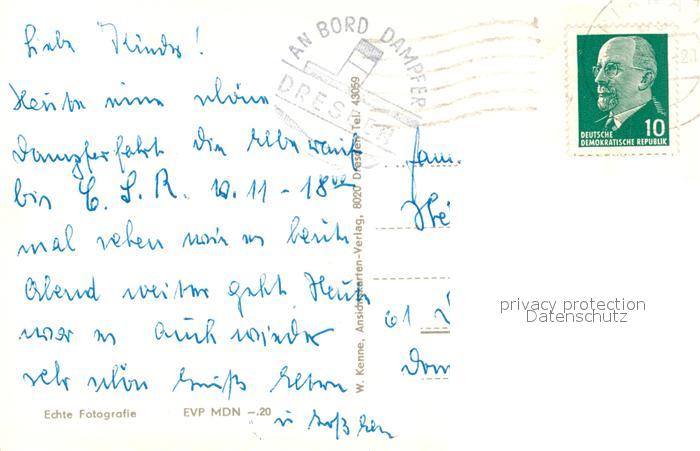 Liebe Kinder!
Heute eine schöne
Dampferfahrt die Elbe rauf
bis C.S.R. 10.11 - 18 Uhr
mal sehen wie es heute
Abend weiter geht Heute
war es auch wieder
sehr schön Gruß Eltern
Echte Fotografie EVP MDN –.20
W. Kenne, Ansichtskarten-Verlag, 8020 Dresden Tel. 43059
AN BORD DAMPFER
DRESDEN
10
DEUTSCHE
DEMOKRATISCHE REPUBLIK
Fam.
61
privacy protection
Datenschutz